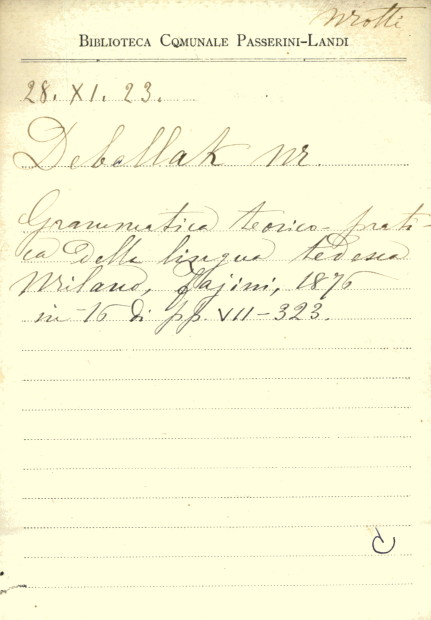 Miotti
BIBLIOTECA COMUNALE PASSERINI-LANDI
28. XI. 23.
Debellak M.
Grammatica teorico-prati-
ca della lingua tedesca
Milano, Jajini, 1876
in 16 di pp. VII-323.